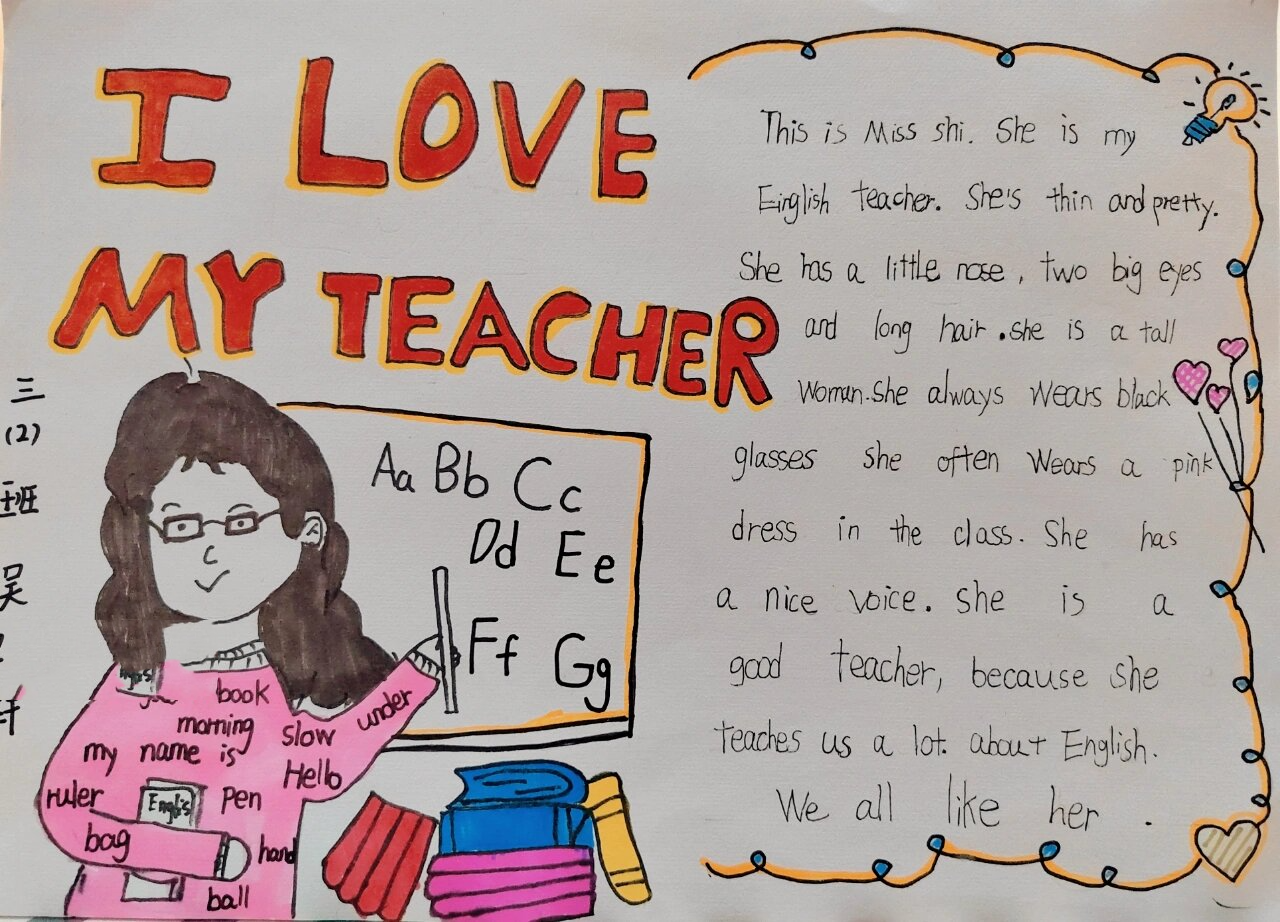 I LOVE
MY TEACHER
三
(2)
班
吴
Aa Bb Cc
Dd Ee
Ff Gg
book
morning
slow
under
my name is
Hello
ruler
Englis
pen
bag
hand
ball
This is Miss shi. She is my
Einglish teacher. She's thin and pretty.
She has a little nose, two big eyes
and long hair. she is a tall
woman. She always wears black
glasses she often wears a pink
dress in the class. She has
a nice voice. she is a
good teacher, because she
teaches us a lot. about English.
We all like her.